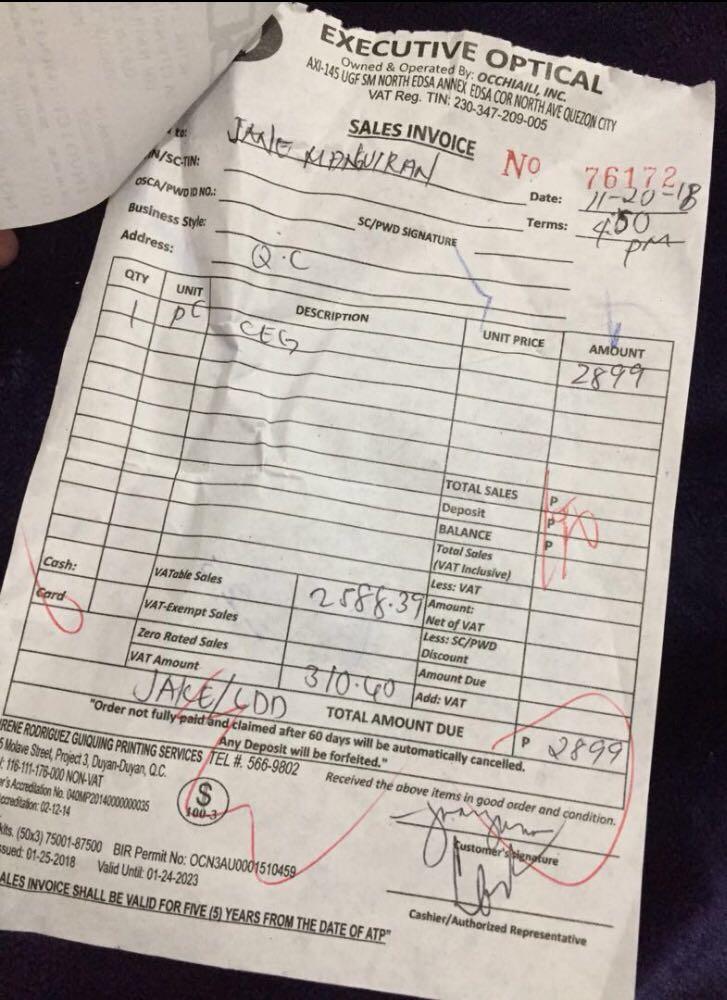 EXECUTIVE OPTICAL
Owned & Operated By: OCCHIAILI, INC.
AXI-145 UGF SM NORTH EDSA ANNEX EDSA COR NORTH AVE QUEZON CITY
VAT Reg. TIN: 230-347-209-005
SALES INVOICE
No 76172
to: JANE MANGUIRAN
Date: 11-20-18
N/SC-TIN:
Terms: 4:50 PM
OSCA/PWD ID NO.:
SC/PWD SIGNATURE
Business Style:
Address: Q.C
QTY UNIT DESCRIPTION UNIT PRICE AMOUNT
1 PC CEG 2899
TOTAL SALES P
Deposit P
BALANCE P
Total Sales
(VAT Inclusive)
Cash: VATable Sales 2588.39 Less: VAT
Amount:
Card VAT-Exempt Sales Net of VAT
Zero Rated Sales Less: SC/PWD
Discount
VAT Amount 310.60 Amount Due
Add: VAT
JAKE/LDD TOTAL AMOUNT DUE P 2899
"Order not fully paid and claimed after 60 days will be automatically cancelled.
Any Deposit will be forfeited."
IRENE RODRIGUEZ GUIQUING PRINTING SERVICES TEL #. 566-9802
5 Molave Street, Project 3, Duyan-Duyan, Q.C.
: 116-111-176-000 NON-VAT
er's Accreditation No. 040MP20140000000035
ccreditation: 02-12-14
$
100-3
Received the above items in good order and condition.
Customer's Signature
kits. (50x3) 75001-87500 BIR Permit No: OCN3AU0001510459
ssued: 01-25-2018 Valid Until: 01-24-2023
Cashier/Authorized Representative
ALES INVOICE SHALL BE VALID FOR FIVE (5) YEARS FROM THE DATE OF ATP"